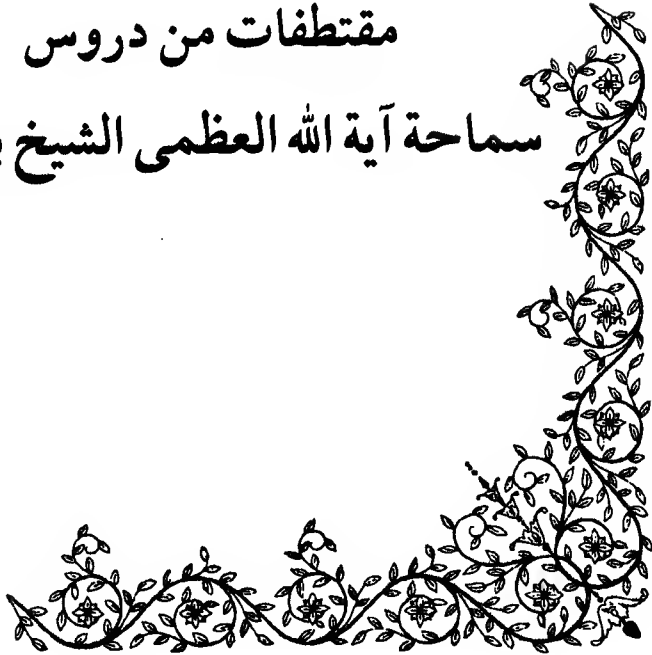 مقتطفات من دروس
سماحة آية الله العظمى الشيخ